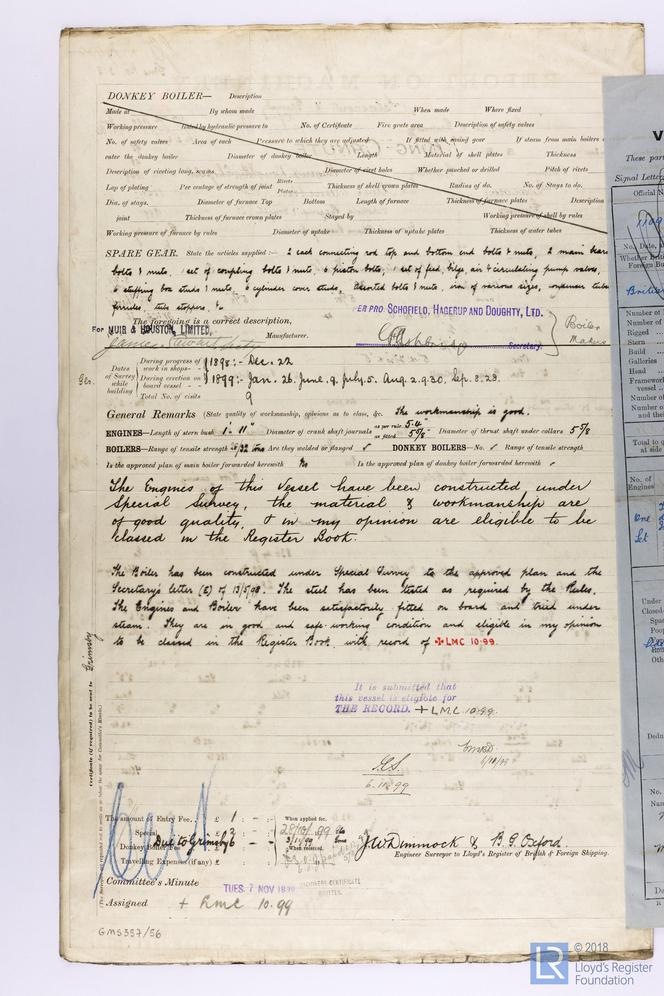 DONKEY BOILER— Description
Made at By whom made When made Where fixed
Working pressure tested by hydraulic pressure to No. of Certificate Fire grate area Description of safety valves
No. of safety valves Area of each Pressure to which they are adjusted If fitted with easing gear If steam from main boilers
enter the donkey boiler Diameter of donkey boiler Length Material of shell plates Thickness
Description of riveting long. seams Diameter of rivet holes Whether punched or drilled Pitch of rivets
Lap of plating Per centage of strength of joint Rivets Plates Thickness of shell crown plates Radius of do. No. of Stays to do.
Dia. of stays. Diameter of furnace Top Bottom Length of furnace Thickness of furnace plates Description
joint Thickness of furnace crown plates Stayed by Working pressure of shell by rules
Working pressure of furnace by rules Diameter of uptake Thickness of uptake plates Thickness of water tubes
SPARE GEAR. State the articles supplied:— 2 each connecting rod top and bottom end bolts & nuts, 2 main bear
bolts & nuts, 1 set of coupling bolts & nuts, 6 piston bolts, 1 set of feed, bilge, air & circulating pump valves,
6 stuffing box studs & nuts, 6 cylinder cover studs, assorted bolts & nuts, iron of various sizes, condenser tube
ferrules, tube stoppers, &c
The foregoing is a correct description,
For MUIR & HOUSTON, LIMITED,
Manufacturer.
ER PRO SCHOFIELD, HAGERUP AND DOUGHTY, LTD.
Secretary.
Boiler Makers
Gls.
Dates of Survey while building
During progress of work in shops-- 1898:- Dec. 22
During erection on board vessel--- 1899:- Jan. 26. June. 9. July. 5. Aug. 2. 9. 30. Sep. 8. 23.
Total No. of visits 9
General Remarks (State quality of workmanship, opinions as to class, &c. The workmanship is good.
ENGINES—Length of stern bush 1' 11" Diameter of crank shaft journals as per rule 5.4" as fitted 5 5/8" Diameter of thrust shaft under collars 5 5/8
BOILERS—Range of tensile strength 28/32 tons Are they welded or flanged ✓ DONKEY BOILERS—No. ✓ Range of tensile strength
Is the approved plan of main boiler forwarded herewith No Is the approved plan of donkey boiler forwarded herewith ✓
The Engines of this Vessel have been constructed under
Special Survey, the material & workmanship are
of good quality, & in my opinion are eligible to be
classed in the Register Book.
The Boiler has been constructed under Special Survey to the approved plan and the
Secretary's letter (E) of 13/5/98. The steel has been tested as required by the Rules.
The Engines and Boiler have been satisfactorily fitted on board and tried under
steam. They are in good and safe working condition and eligible in my opinion
to be classed in the Register Book with record of +LMC 10.99.
Certificate (if required) to be sent to Grimsby
It is submitted that
this vessel is eligible for
THE RECORD. + L.M.C. 10.99.
6.11.99
The amount of Entry Fee.. £ 1 : - : -
Special £
Donkey Boiler Fee
Due to Grimsby
Travelling Expenses (if any) £
When applied for.
When received.
J.W. Dimmock & B.G. Oxford.
Engineer Surveyor to Lloyd's Register of British & Foreign Shipping.
Committee's Minute
TUES. 7 NOV 1899
MACHINERY CERTIFICATE
WRITTEN.
Assigned + LMC 10.99
GMS357/56
These par
Signal Letter
Official N
No., Date,
Foreign Bu
British
Number of
Number of
Rigged
Stern
Build
Galleries
Head
Framework
vessel
Number of
Number o
and thei
Total to q
at side
No. of
Engines
One
Set
Under
Closed-
Spac
Poop
Oth
Dedu
No.
© 2018
LR
Lloyd's Register
Foundation